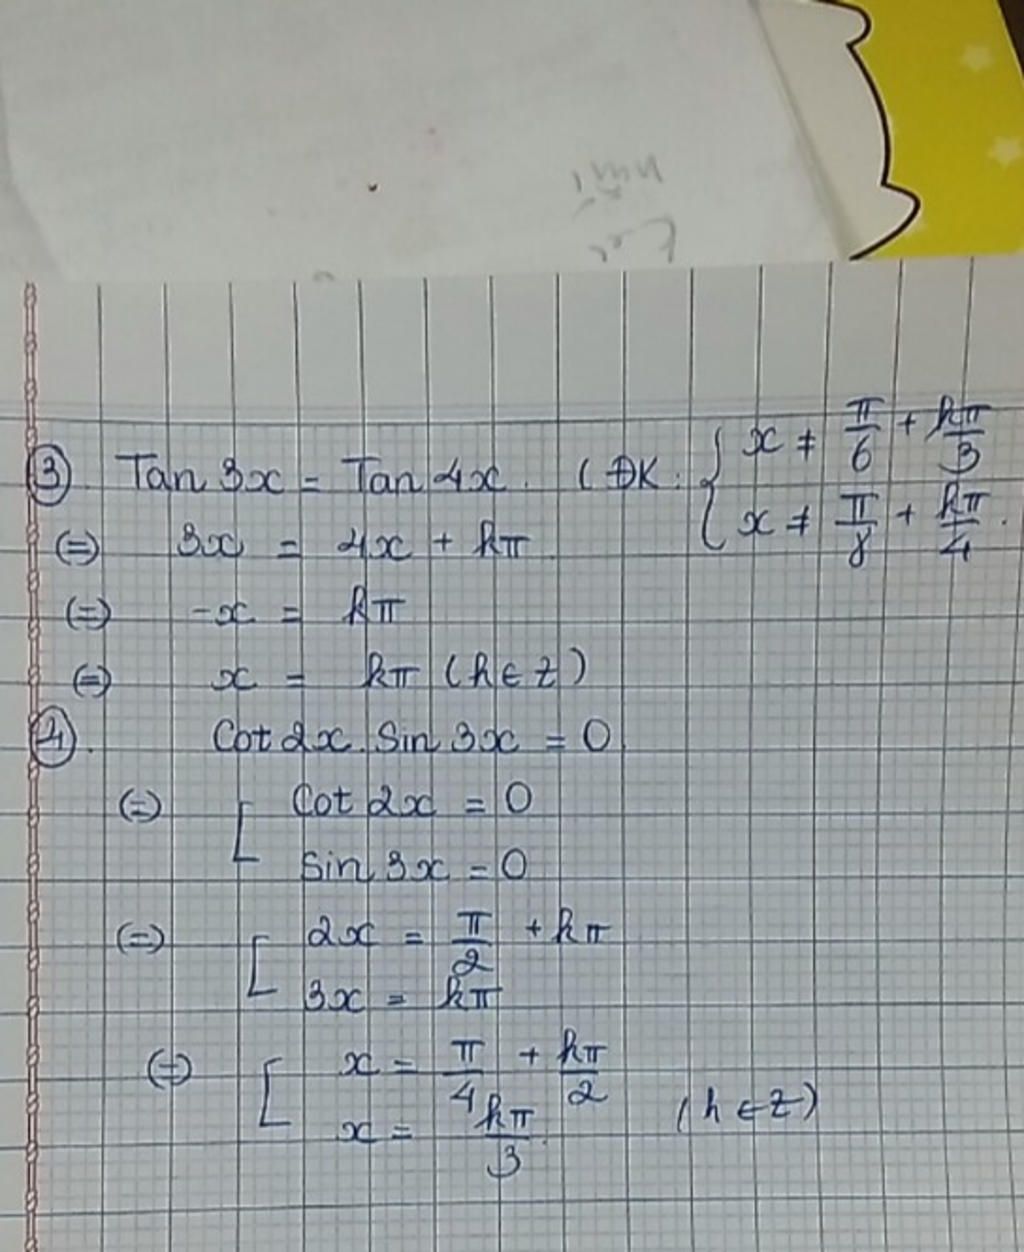 ③. Tan 3x = Tan 4x. (ĐK: { x ≠ π/6 + kπ/3
x ≠ π/8 + kπ/4.
(=) 3x = 4x + kπ
(=) -x = kπ
(=) x = kπ (k ∈ z)
④. Cot 2x. Sin 3x = 0
(=) [ Cot 2x = 0
Sin 3x = 0
(=) [ 2x = π/2 + kπ
3x = kπ
(=) [ x = π/4 + kπ/2
x = kπ/3. (k ∈ z)